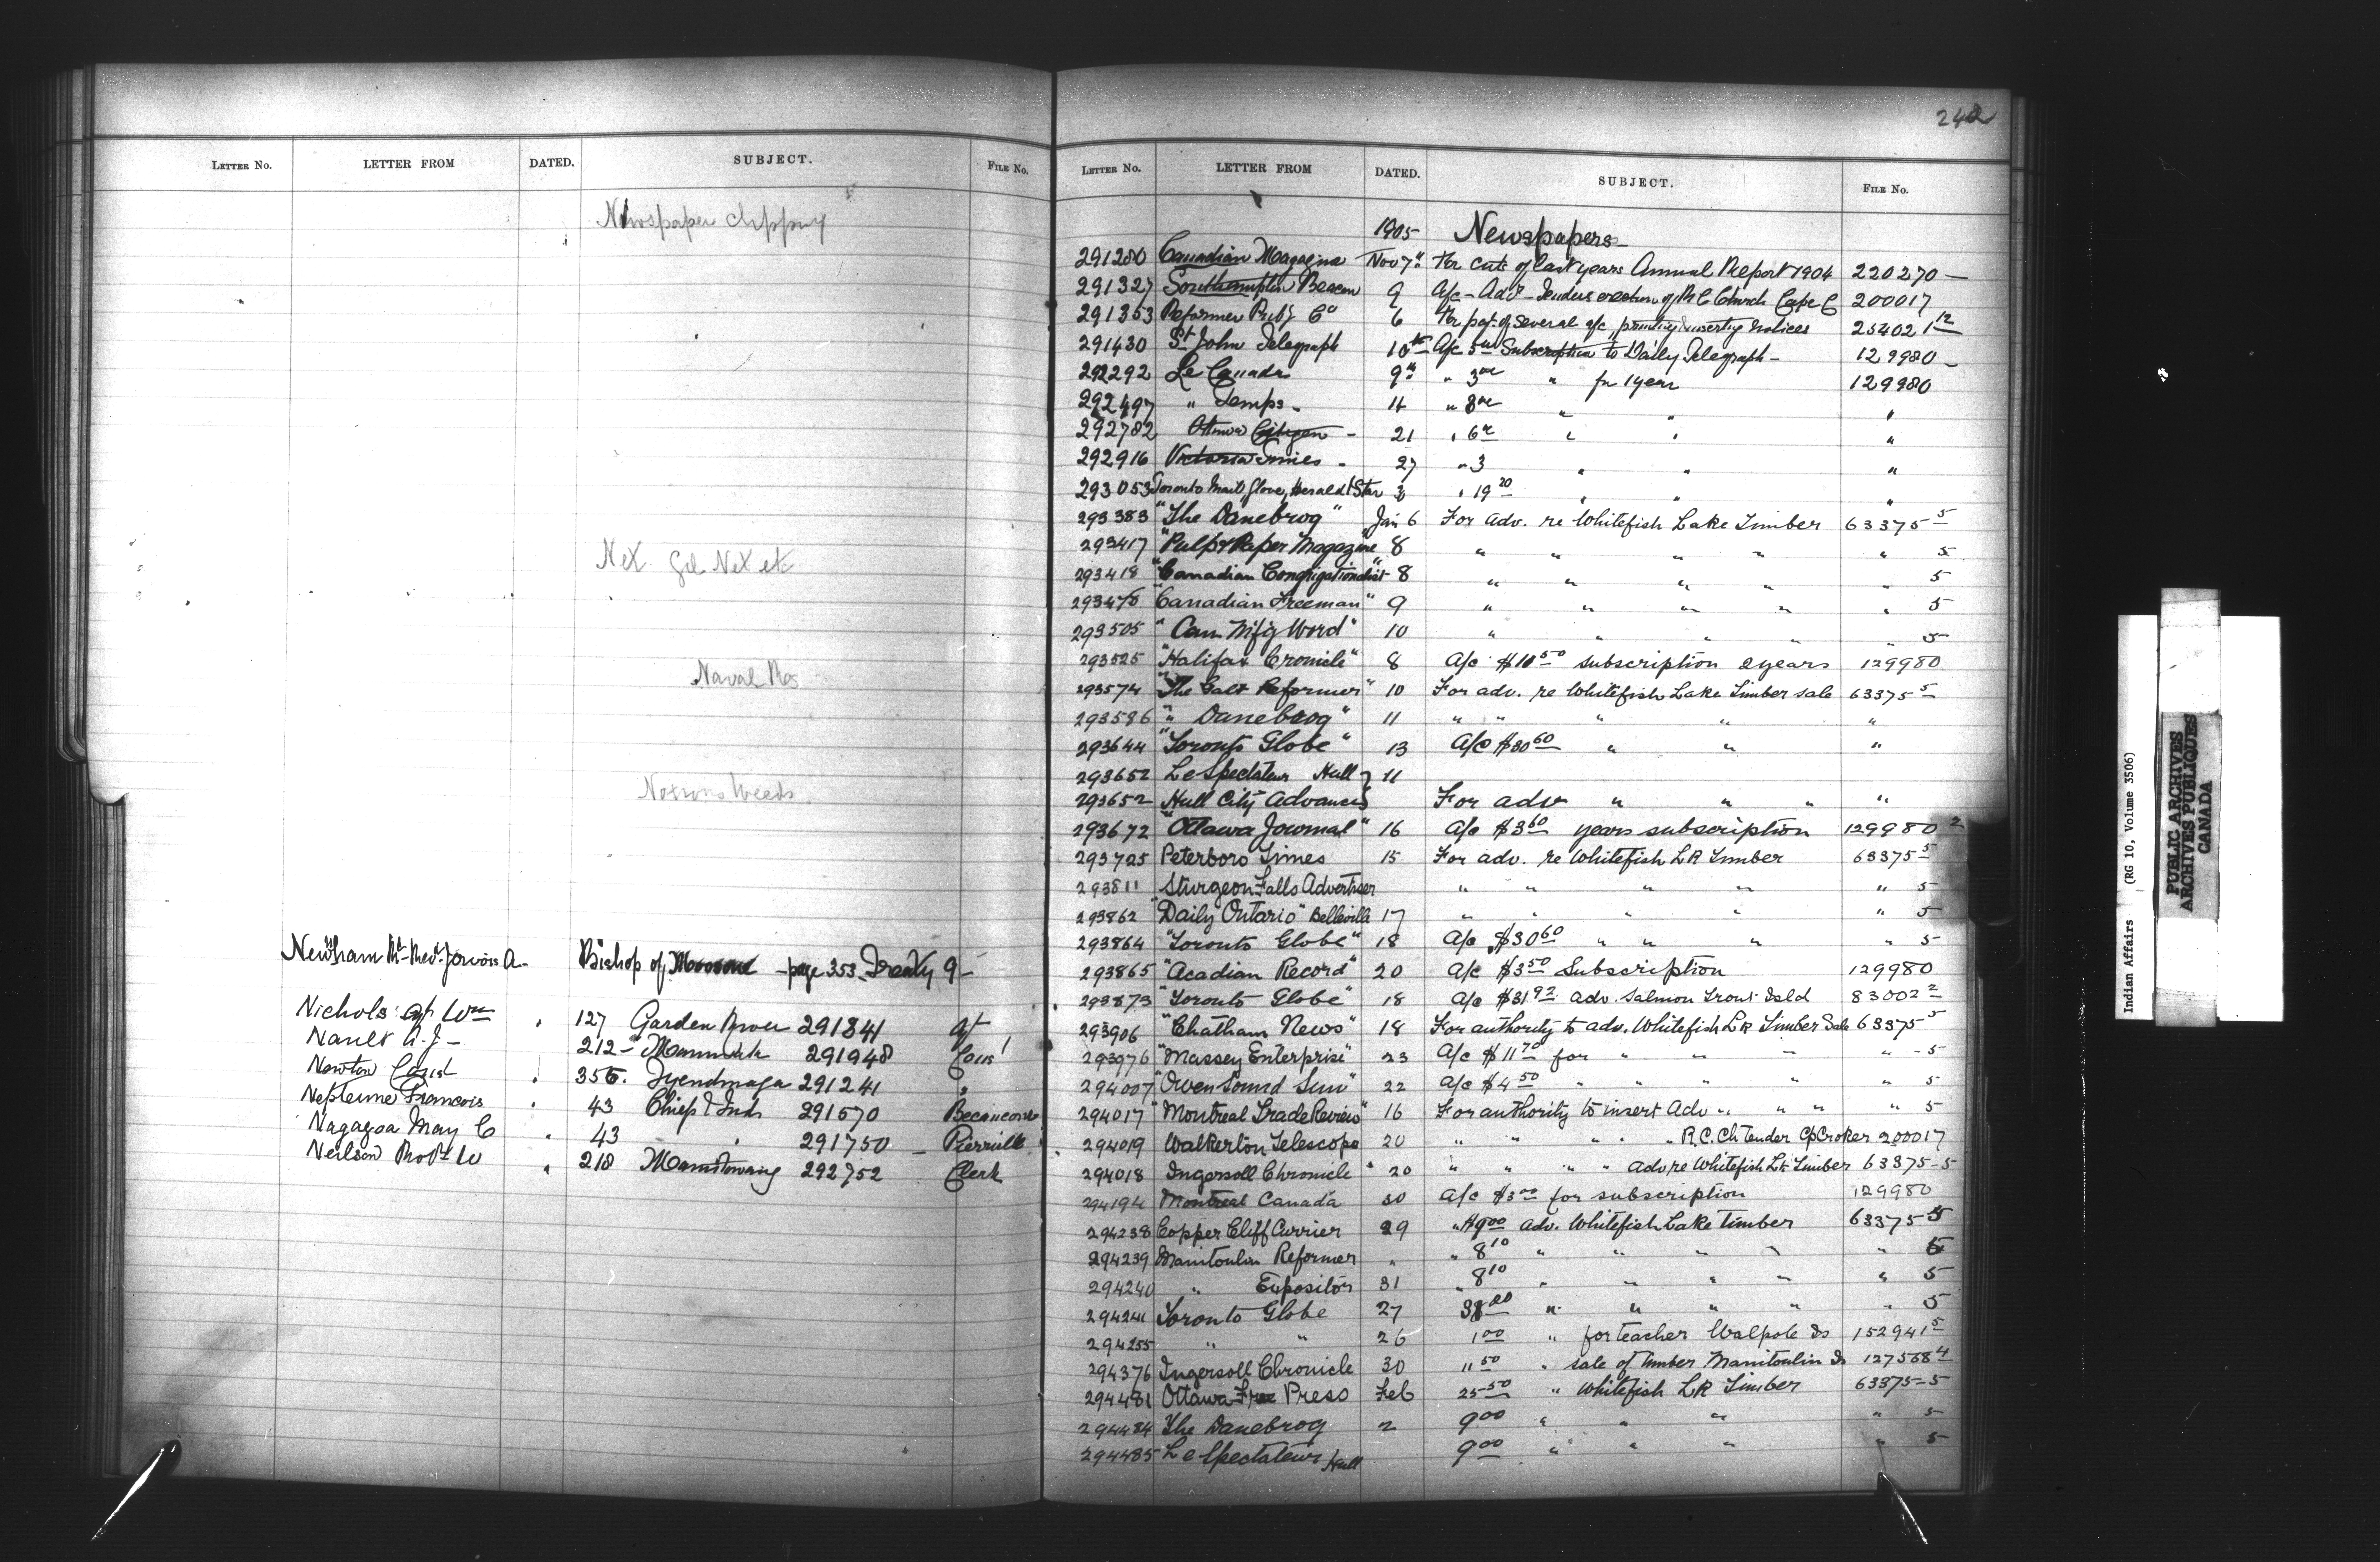 LETTER NO. LETTER FROM DATED. SUBJECT. FILE NO.
Newspaper Clipping
Net. Gil Net etc
Naval Res
Noxious Weeds
Newnham Rt. Revd. Jervois A - Bishop of Moosonee - page 353. Treaty 9 -
Nichols Wm 127 Garden River 291841
Nault A. J - 212 - 291948
Newton 356. Tyendinaga 291241 "
Neptune Francois 43 Chief & Inds 291570 Becancour
Nagazoa May C 43 " 291750 - Pierreville
Neilson Robt W 218 Manitowaning 292752 Clerk
242
LETTER NO. LETTER FROM DATED. SUBJECT. FILE NO.
1905 Newspapers -
291280 Canadian Magazine Nov 7th for cuts of last years Annual Report 1904 220270 -
291327 Southampton Beacon 9 A/c - Advt - Tenders erection of R C Church Cape C 200017
291353 Reformer Co 6 for pat. of several a/c, printing inserting notices 254021 12
291430 St John Telegraph 10th A/c 5 00 Subscription to Daily Telegraph - 129980 -
292292 Le Canada 9th " 3 00 " for 1 year 129980
292497 " Temps - 14 " 8 00 " " "
292782 Ottawa Citizen - 21 " 6 00 " " "
292916 Victoria Times - 27 " 3 " " "
293053 Toronto Mail Globe, Herald & Star 3 " 19 20 " " "
293383 "The Danebrog" Jan 6 For adv. re Whitefish Lake Timber 63375 5
293417 "Pulp & Paper Magazine 8 " " " " " 5
293418 "Canadian Congrigationalist" 8 " " " " " 5
293478 Canadian Freeman" 9 " " " " " 5
293505 "Can Mfg Word" 10 " " " " " 5
293525 "Halifax Cronicle" 8 A/c $10 50 subscription 2 years 129980
293574 "The Galt Reformer" 10 For adv. re Whitefish Lake Timber sale 63375 5
293586 " Danebrog" 11 " " " " "
293644 "Toronto Globe" 13 A/c $30 60 " " "
293652 Le Spectateur Hull } 11
293652 Hull City Advance } For adv " " " "
293672 "Ottawa Journal" 16 A/c $3 60 years subscription 129980 2
293725 Peterboro Times 15 For adv. re Whitefish LK Timber 63375 5
293811 Sturgeon Falls Advertiser " " " " " 5
293862 "Daily Ontario" Belleville 17 " " " " " 5
293864 "Toronto Globe" 18 A/c $30 60 " " " " 5
293865 "Acadian Record" 20 A/c $3 50 Subscription 129980
293873 "Toronto Globe" 18 A/c $31 92 adv. Salmon Trout Isld 83002 2
293906 "Chatham News" 18 For authority to adv. Whitefish LK Timber Sale 63375 5
293976 "Massey Enterprise" 23 A/c $11 70 for " " " " - 5
294007 "Owen Sound Sun" 22 A/c $4 50 " " " " " 5
294017 "Montreal Trade Review" 16 For authority to insert Adv " " " " 5
294019 Walkerton Telescope 20 " " " " R.C. Ch Tender Cp Croker 200017
294018 Ingersoll Chronicle " 20 " " " " adv re Whitefish Lk Timber 63375-5
294194 Montreal Canada 30 A/c $3 00 for subscription 129980
294238 Copper Cliff Currier 29 " $9 00 adv. Whitefish Lake Timber 63375-5
294239 Manitoulin Reformer " " 8 10 " " " " " 5
294240 " Expositor 31 " 8 10 " " " " " 5
294241 Toronto Globe 27 38 00 " " " " " 5
294255 " " 26 1 00 " for teacher Walpole Is 152941 5
294376 Ingersoll Chronicle 30 11 50 " sale of timber Manitoulin Is 127568 4
294481 Ottawa Free Press Feb 25 50 " Whitefish LK Timber 63375-5
294484 The Danebrog 2 9 00 " " " " 5
294485 Le Spectateur Hull 9 00 " " " " 5
Indian Affairs (RG 10, Volume 3506)
PUBLIC ARCHIVES
ARCHIVES PUBLIQUES
CANADA